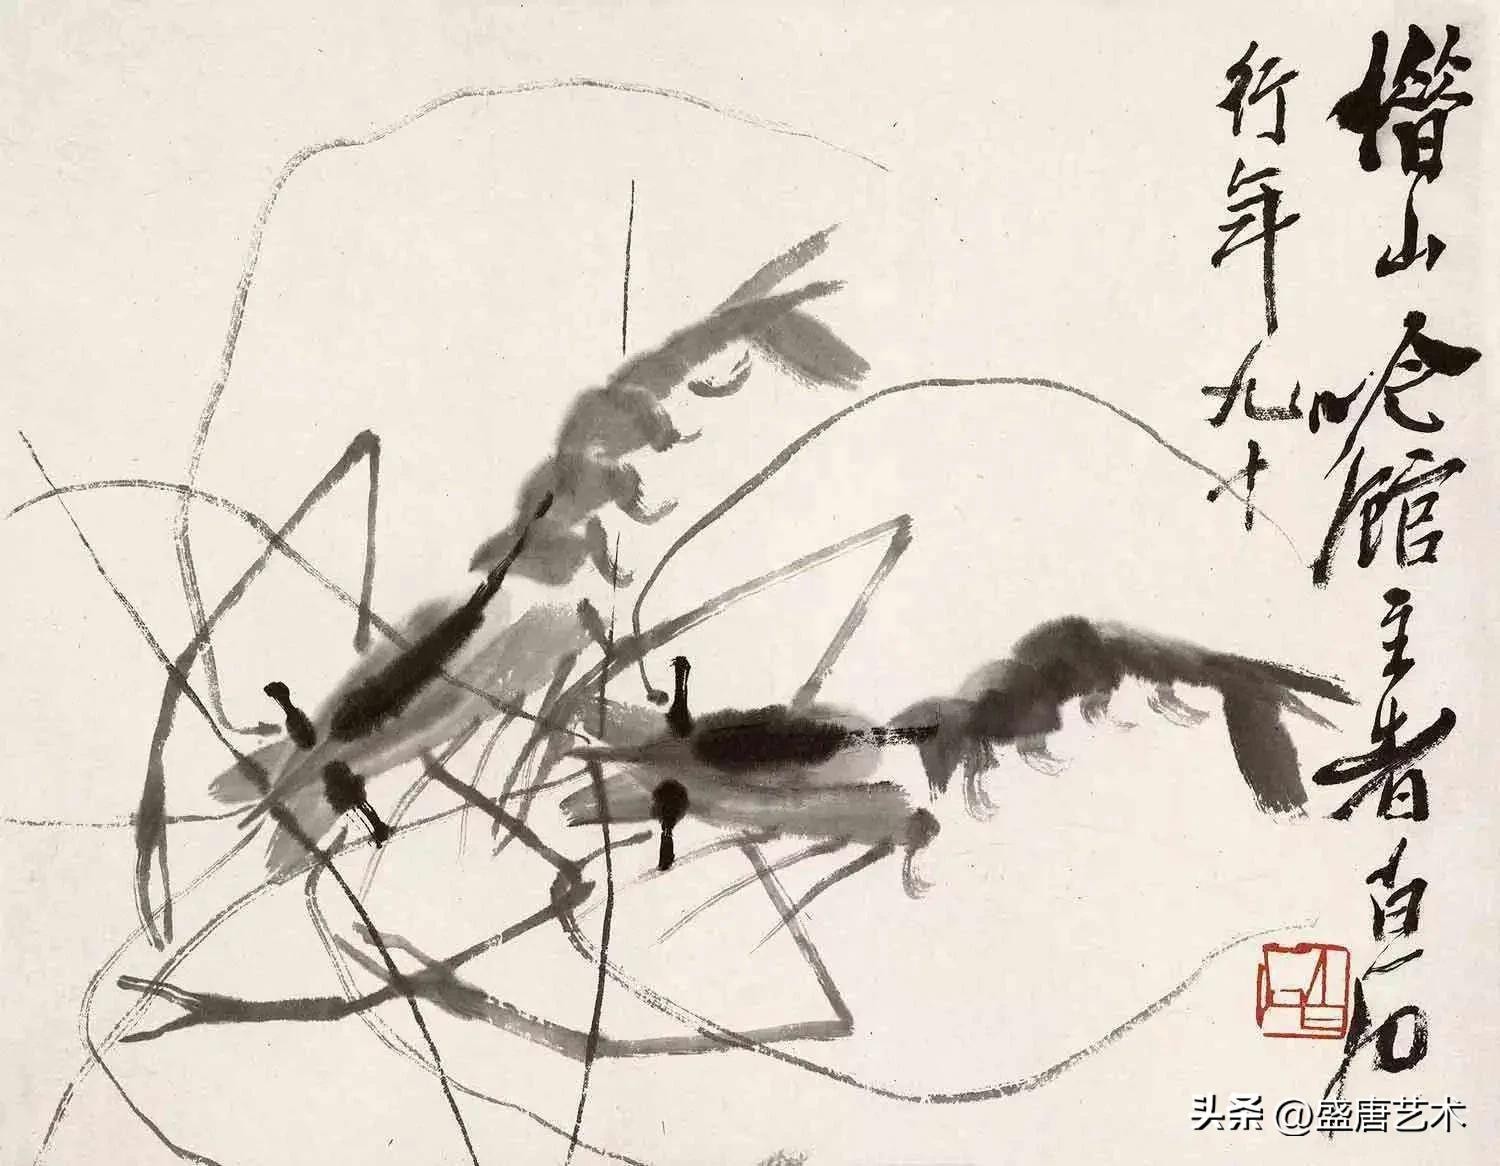 借山吟館主者白石
行年九十
头条 @盛唐艺术